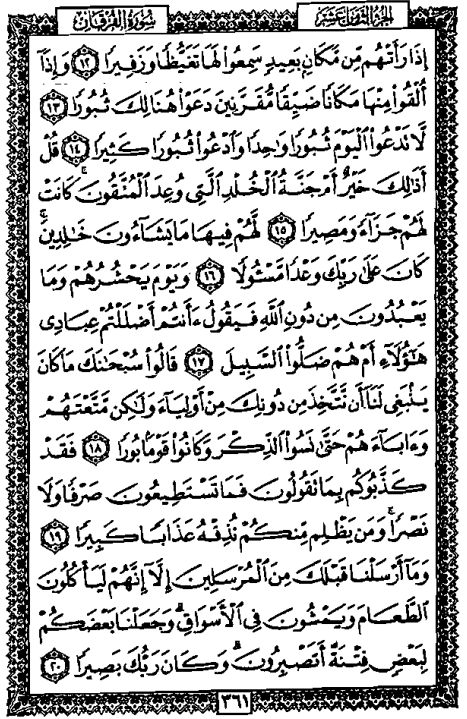 سُورَةُ الفُرْقَان الجُزْءُ الثَّامِنَ عَشَرَ
إِذَا رَأَتْهُم مِّن مَّكَانٍ بَعِيدٍ سَمِعُوا۟ لَهَا تَغَيُّظًا وَزَفِيرًا ١٢ وَإِذَآ
أُلْقُوا۟ مِنْهَا مَكَانًا ضَيِّقًا مُّقَرَّنِينَ دَعَوْا۟ هُنَالِكَ ثُبُورًا ١٣
لَّا تَدْعُوا۟ ٱلْيَوْمَ ثُبُورًا وَٰحِدًا وَٱدْعُوا۟ ثُبُورًا كَثِيرًا ١٤ قُلْ
أَذَٰلِكَ خَيْرٌ أَمْ جَنَّةُ ٱلْخُلْدِ ٱلَّتِى وُعِدَ ٱلْمُتَّقُونَ ۚ كَانَتْ
لَهُمْ جَزَآءً وَمَصِيرًا ١٥ لَّهُمْ فِيهَا مَا يَشَآءُونَ خَٰلِدِينَ ۚ
كَانَ عَلَىٰ رَبِّكَ وَعْدًا مَّسْـُٔولًا ١٦ وَيَوْمَ يَحْشُرُهُمْ وَمَا
يَعْبُدُونَ مِن دُونِ ٱللَّهِ فَيَقُولُ ءَأَنتُمْ أَضْلَلْتُمْ عِبَادِى
هَٰٓؤُلَآءِ أَمْ هُمْ ضَلُّوا۟ ٱلسَّبِيلَ ١٧ قَالُوا۟ سُبْحَٰنَكَ مَا كَانَ
يَنۢبَغِى لَنَآ أَن نَّتَّخِذَ مِن دُونِكَ مِنْ أَوْلِيَآءَ وَلَٰكِن مَّتَّعْتَهُمْ
وَءَابَآءَهُمْ حَتَّىٰ نَسُوا۟ ٱلذِّكْرَ وَكَانُوا۟ قَوْمًۢا بُورًا ١٨ فَقَدْ
كَذَّبُوكُم بِمَا تَقُولُونَ فَمَا تَسْتَطِيعُونَ صَرْفًا وَلَا
نَصْرًا ۚ وَمَن يَظْلِم مِّنكُمْ نُذِقْهُ عَذَابًا كَبِيرًا ١٩
وَمَآ أَرْسَلْنَا قَبْلَكَ مِنَ ٱلْمُرْسَلِينَ إِلَّآ إِنَّهُمْ لَيَأْكُلُونَ
ٱلطَّعَامَ وَيَمْشُونَ فِى ٱلْأَسْوَاقِ ۗ وَجَعَلْنَا بَعْضَكُمْ
لِبَعْضٍ فِتْنَةً أَتَصْبِرُونَ ۗ وَكَانَ رَبُّكَ بَصِيرًا ٢٠
٣٦١